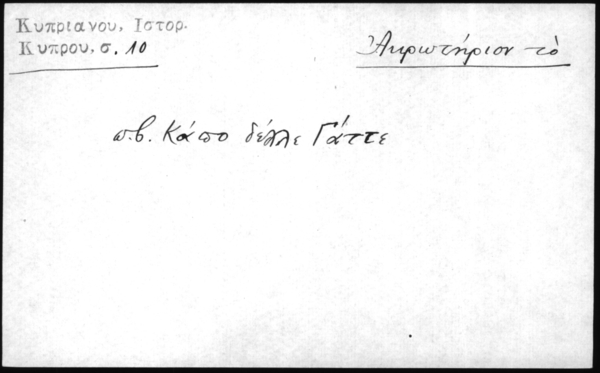 Κυπριανου, Ιστορ.
Κυπρου, σ. 10
Ἀκρωτήριον τὸ
π.β. Κάπο δέλλε Γάττε